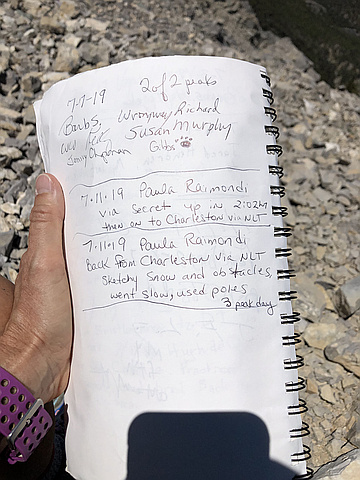 7-7-19 2 of 2 peaks
Barbs, Wrongway Richard
Susan Murphy
Gibbs
7.11.19 Paula Raimondi
via Secret up in 2:02hr
then on to Charleston via NLT
7.11.19 Paula Raimondi
Back from Charleston via NLT
Sketchy Snow and obstacles,
went slow, used poles
3 peak day